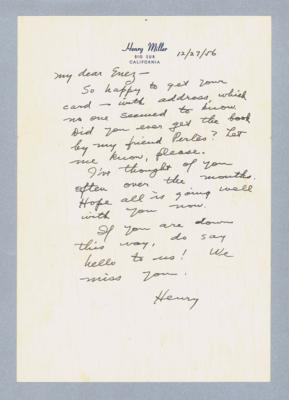 Henry Miller
BIG SUR
CALIFORNIA
12/27/56
My dear Enez —
So happy to get your
card — with address, which
no one seemed to know.
Did you ever get the book
by my friend Perlès? Let
me know, please.
I've thought of you
often over the months.
Hope all is going well
with you now.
If you are down
this way, do say
hello to us! We
miss you.
Henry